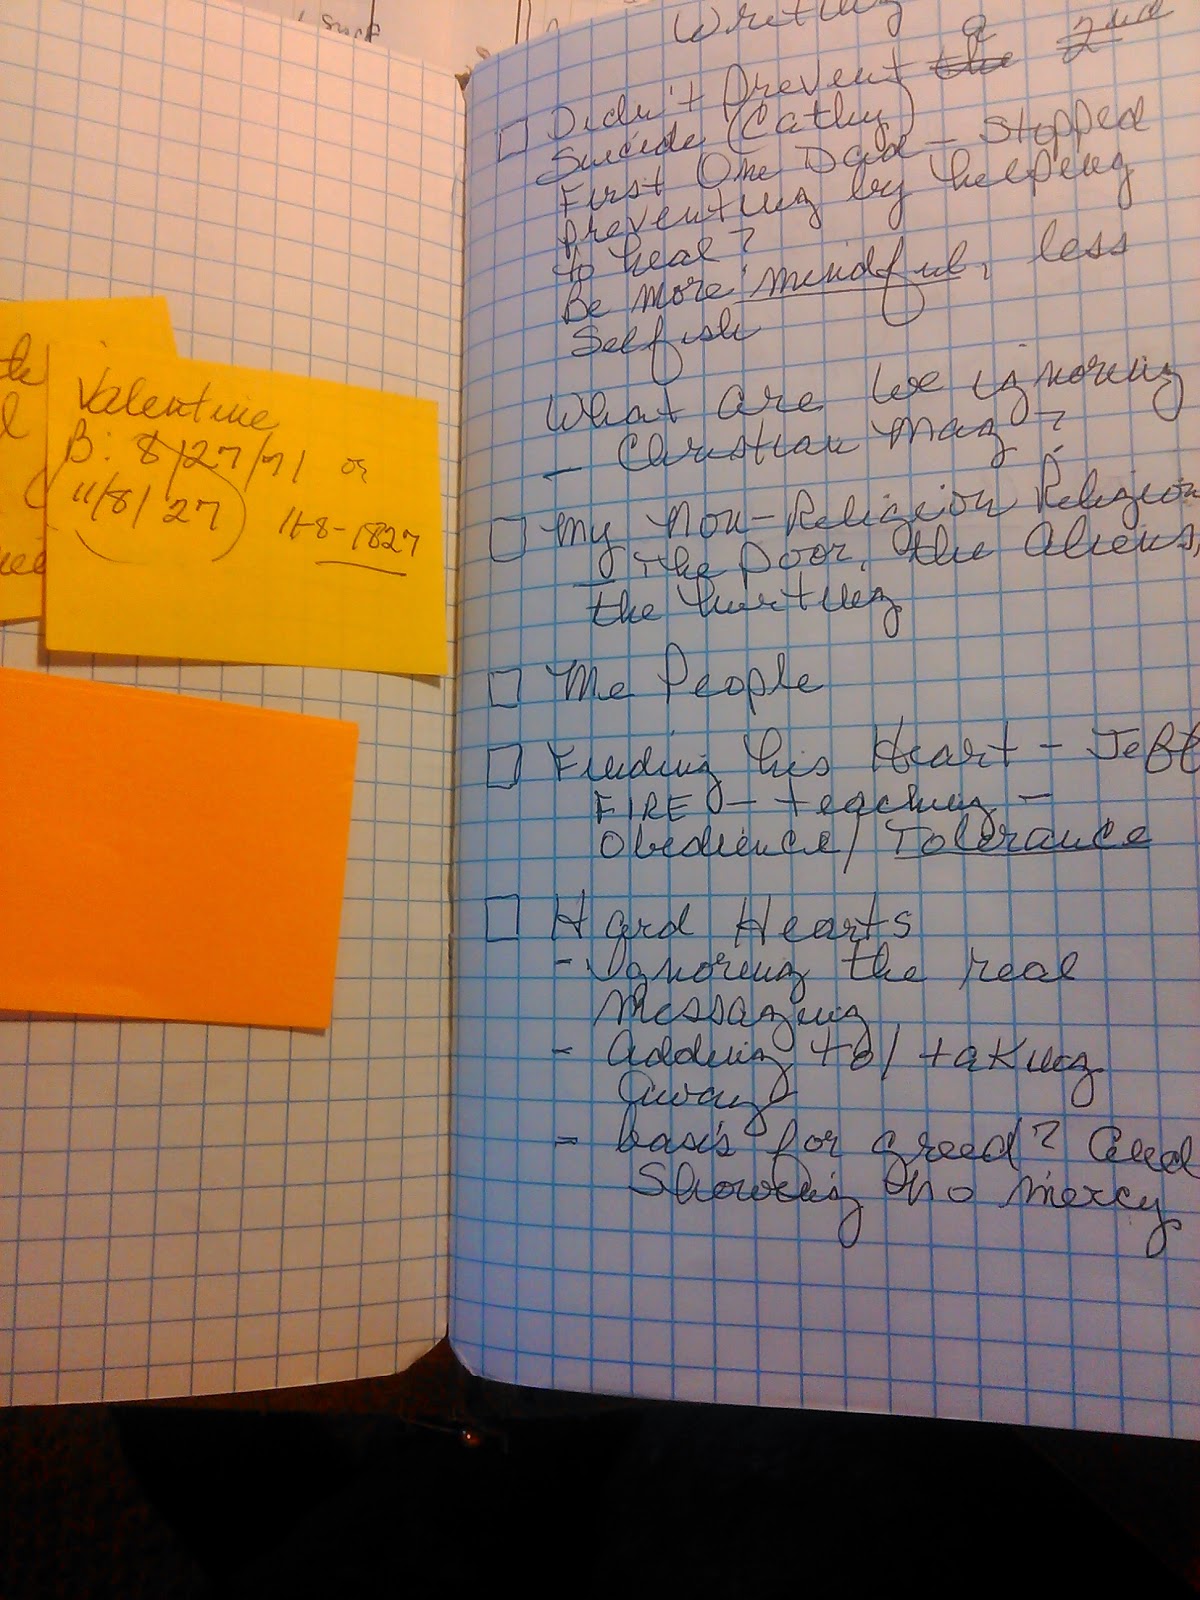 Valentine
B: 8/27/71 or
11/8/27 11-8-1827
Writing
a
Didn't prevent the 2nd
Suicide (Cathy)
First One Dad - Stopped
preventing by helping
to heal?
Be more mindful, less
Selfish
What are we ignoring
- Christian Mag?
My Non-Religion Religion
- The Poor, the Aliens,
the hurting
Me People
Finding his Heart - Jeff
FIRE - teaching -
Obedience/Tolerance
Hard Hearts
- ignoring the real
messaging
- adding to/taking
away
- basis for greed? and
Showing no mercy